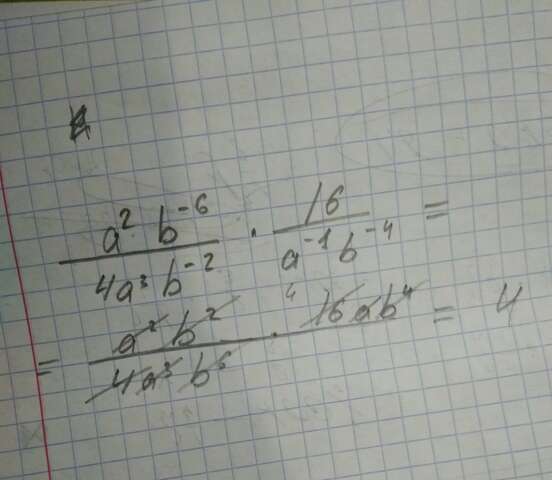 a² b⁻⁶ / 4a³ b⁻² · 16 / a⁻¹ b⁻⁴ =
= a² b² / 4a³ b⁶ · ⁴ 16 ab⁴ = 4